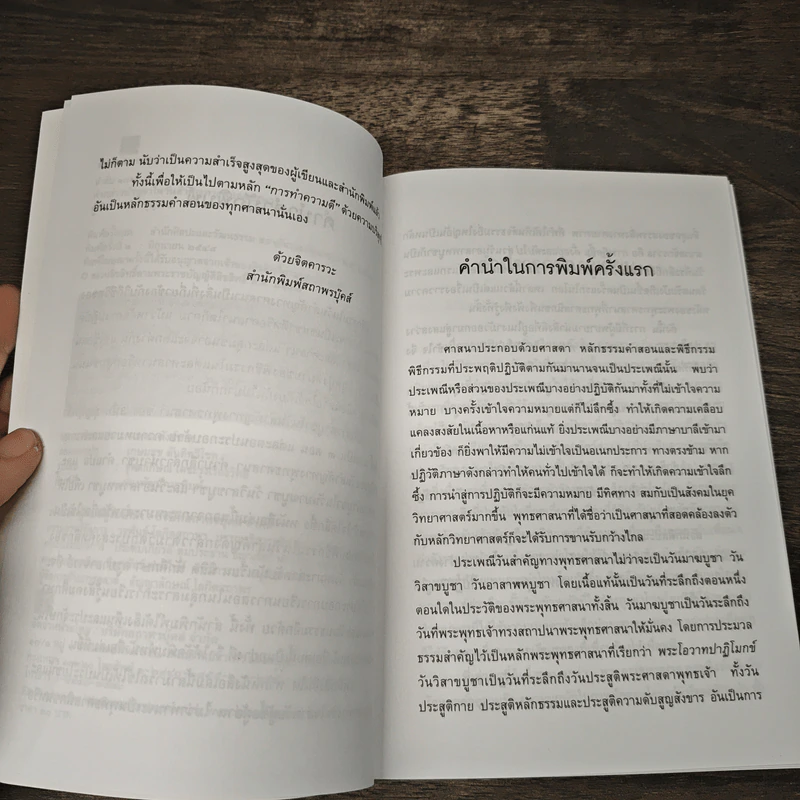 ไม่ก็ตาม นับว่าเป็นความสำเร็จสูงสุดของผู้เขียนและสำนักพิมพ์แล้ว
ทั้งนี้เพื่อให้เป็นไปตามหลัก “การทำความดี” ด้วยความบริสุทธิ์
อันเป็นหลักธรรมคำสอนของทุกศาสนานั่นเอง
ด้วยจิตคารวะ
สำนักพิมพ์สถาพรบุ๊คส์
คำนำในการพิมพ์ครั้งแรก
ศาสนาประกอบด้วยศาสดา หลักธรรมคำสอนและพิธีกรรม
พิธีกรรมที่ประพฤติปฏิบัติตามกันมานานจนเป็นประเพณีนั้น พบว่า
ประเพณีหรือส่วนของประเพณีบางอย่างปฏิบัติกันมาทั้งที่ไม่เข้าใจความ
หมาย บางครั้งเข้าใจความหมายแต่ก็ไม่ลึกซึ้ง ทำให้เกิดความเคลือบ
แคลงสงสัยในเนื้อหาหรือแก่นแท้ ยิ่งประเพณีบางอย่างมีภาษาบาลีเข้ามา
เกี่ยวข้อง ก็ยิ่งพาให้มีความไม่เข้าใจเป็นอเนกประการ ทางตรงข้าม หาก
ปฏิวัติภาษาดังกล่าวทำให้คนทั่วไปเข้าใจได้ ก็จะทำให้เกิดความเข้าใจลึก
ซึ้ง การนำสู่การปฏิบัติก็จะมีความหมาย มีทิศทาง สมกับเป็นสังคมในยุค
วิทยาศาสตร์มากขึ้น พุทธศาสนาที่ได้ชื่อว่าเป็นศาสนาที่สอดคล้องลงตัว
กับหลักวิทยาศาสตร์ก็จะได้รับการขานรับกว้างไกล
ประเพณีวันสำคัญทางพุทธศาสนาไม่ว่าจะเป็นวันมาฆบูชา วัน
วิสาขบูชา วันอาสาฬหบูชา โดยเนื้อแท้นั้นเป็นวันที่ระลึกถึงตอนหนึ่ง
ตอนใดในประวัติของพระพุทธศาสนาทั้งสิ้น วันมาฆบูชาเป็นวันระลึกถึง
วันที่พระพุทธเจ้าทรงสถาปนาพระพุทธศาสนาให้มั่นคง โดยการประมวล
ธรรมสำคัญไว้เป็นหลักพระพุทธศาสนาที่เรียกว่า พระโอวาทปาฏิโมกข์
วันวิสาขบูชาเป็นวันที่ระลึกถึงวันประสูติพระศาสดาพุทธเจ้า ทั้งวัน
ประสูติกาย ประสูติหลักธรรมและประสูติความดับสูญสังขาร อันเป็นการ